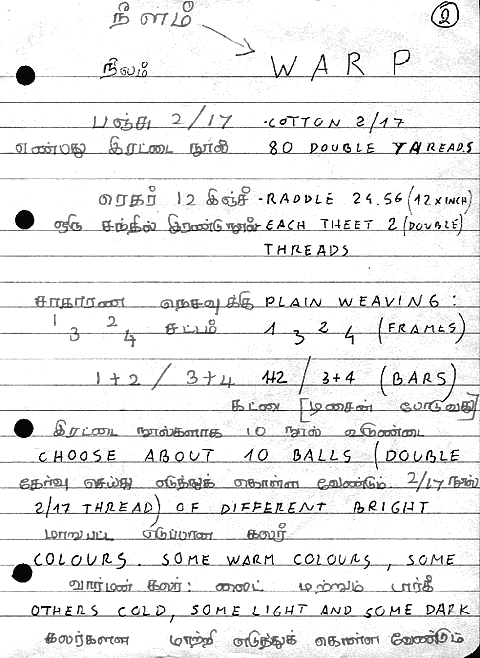 நீளம் 2
நிலம் WARP
பஞ்சு 2/17 - COTTON 2/17
எண்பது இரட்டை நூல் 80 DOUBLE THREADS
ரெகர் 12 இஞ்சீ - RADDLE 24.56 (12 x INCH)
ஒரு சந்தில் இரண்டு நூல் EACH THEET 2 (DOUBLE)
THREADS
சாதாரண நெசவுக்கு PLAIN WEAVING:
1 3 2 4 சட்டம் 1 3 2 4 (FRAMES)
1+2 / 3+4 1+2 / 3+4 (BARS)
கட்டை [டிசைன் போடுவது]
இரட்டை நூல்களாக 10 நூல் உருண்டை
CHOOSE ABOUT 10 BALLS (DOUBLE
தேர்வு செய்து எடுத்துக் கொள்ள வேண்டும். 2/17 நூல்
2/17 THREAD) OF DIFFERENT BRIGHT
மாறுபட்ட எடுப்பான கலர்
COLOURS. SOME WARM COLOURS, SOME
வார்மன் கலர்: லைட் மற்றும் டார்க்
OTHERS COLD, SOME LIGHT AND SOME DARK
கலர்களை மாற்றி எடுத்துக் கொள்ள வேண்டும்